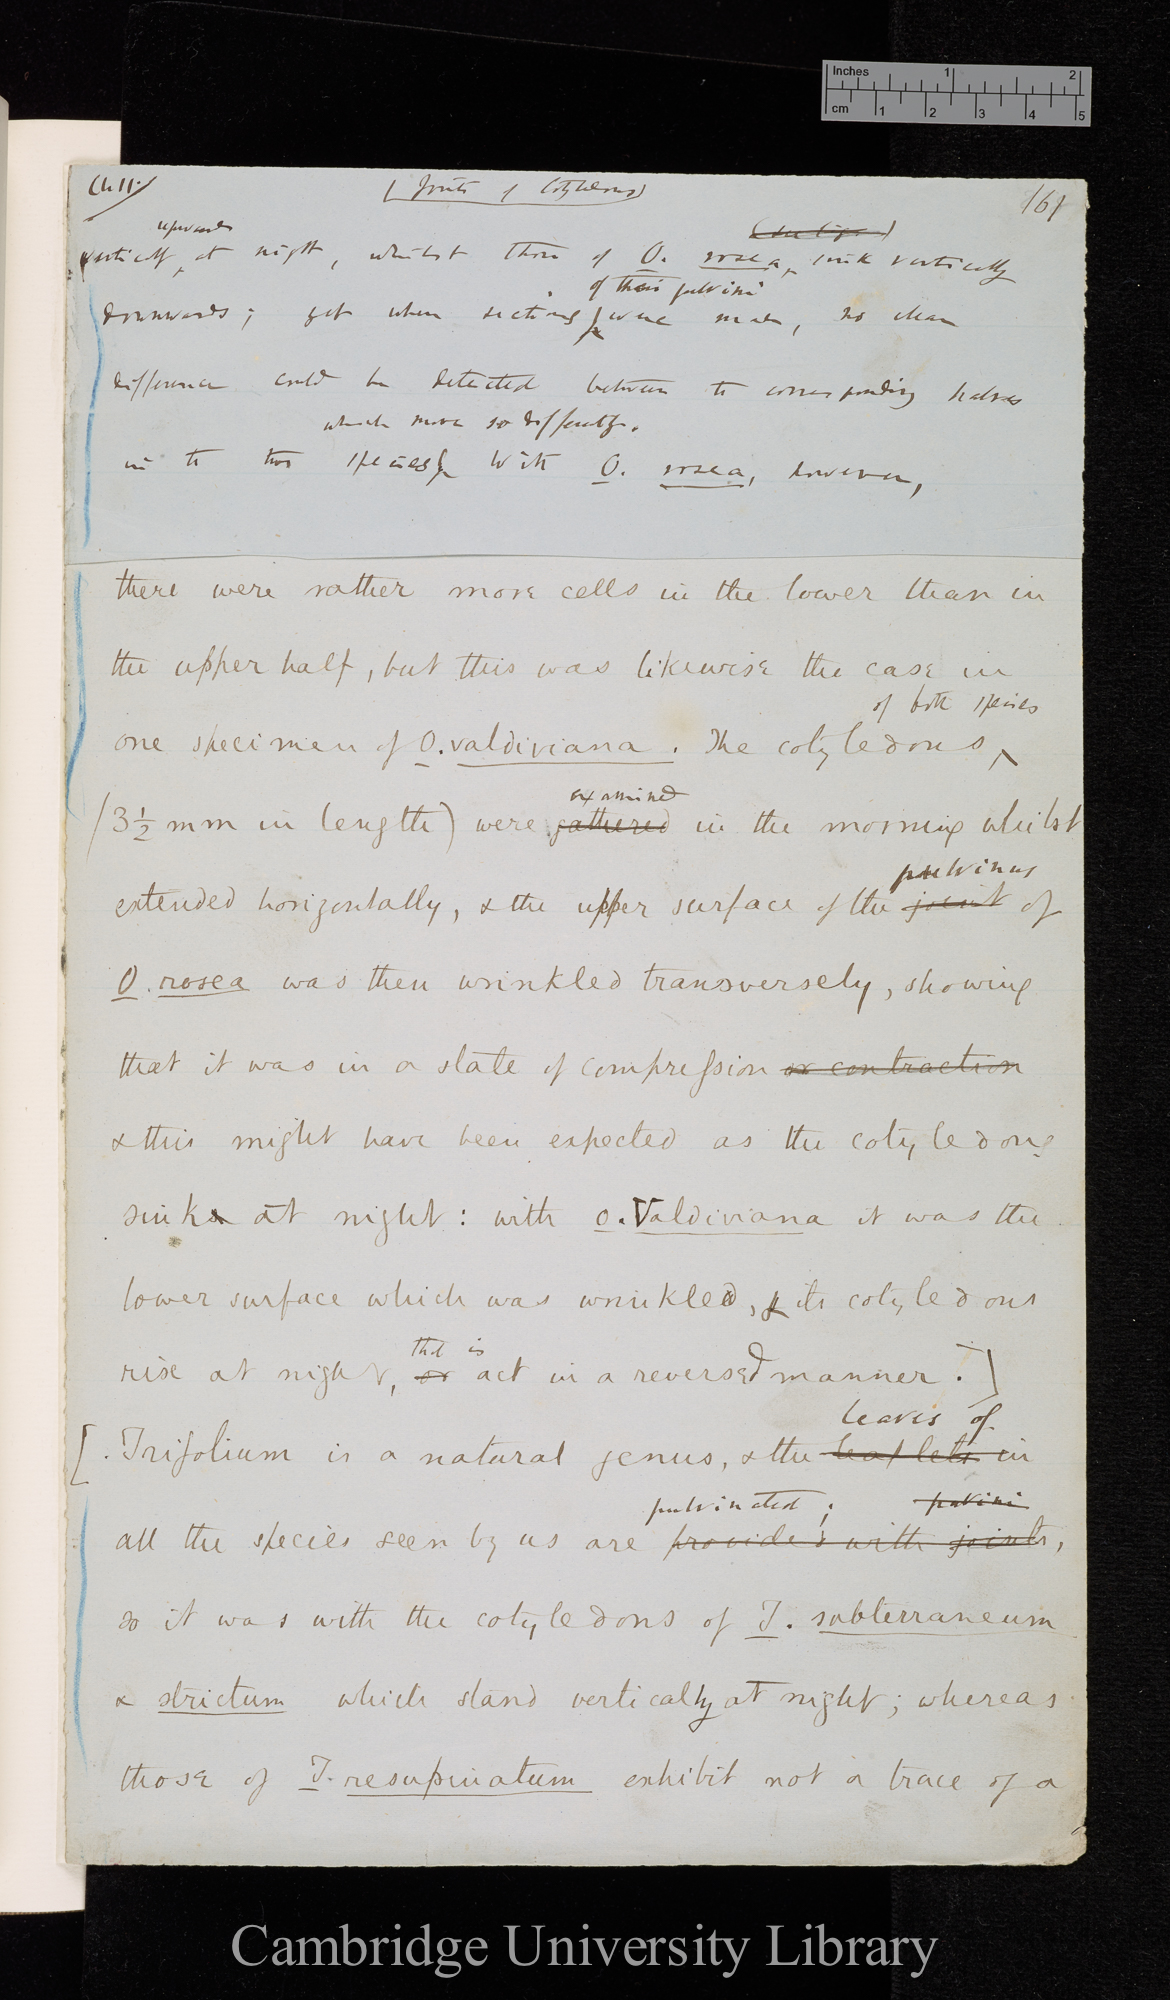 Inches 1 2
cm 1 2 3 4 5
Ch II.
(Joints of Cotyledons)
161
upwards
vertically at night, whilst those of O. rosea, sink vertically
of their pulvini
downwards; yet when sections were made, no clear
difference could be detected between the corresponding halves
which move so differently.
in the two species With O. rosea, however,
there were rather more cells in the lower than in
the upper half, but this was likewise the case in
of both species
one specimen of O. valdiviana. The cotyledons
examined
(3½ mm in length) were gathered in the morning whilst
pulvinus
extended horizontally, & the upper surface of the joint of
O. rosea was then wrinkled transversely, showing
that it was in a state of compression or contraction
& this might have been expected as the cotyledons
sink at night: with O. Valdiviana it was the
lower surface which was wrinkled, & its cotyledons
that is
rise at night, or act in a reversed manner.]
leaves of
[. Trifolium is a natural genus, & the leaflets in
pulvinated; pulvini
all the species seen by us are provided with joints,
so it was with the cotyledons of T. subterraneum
& strictum which stand vertically at night; whereas
those of T. resupinatum exhibit not a trace of a
Cambridge University Library